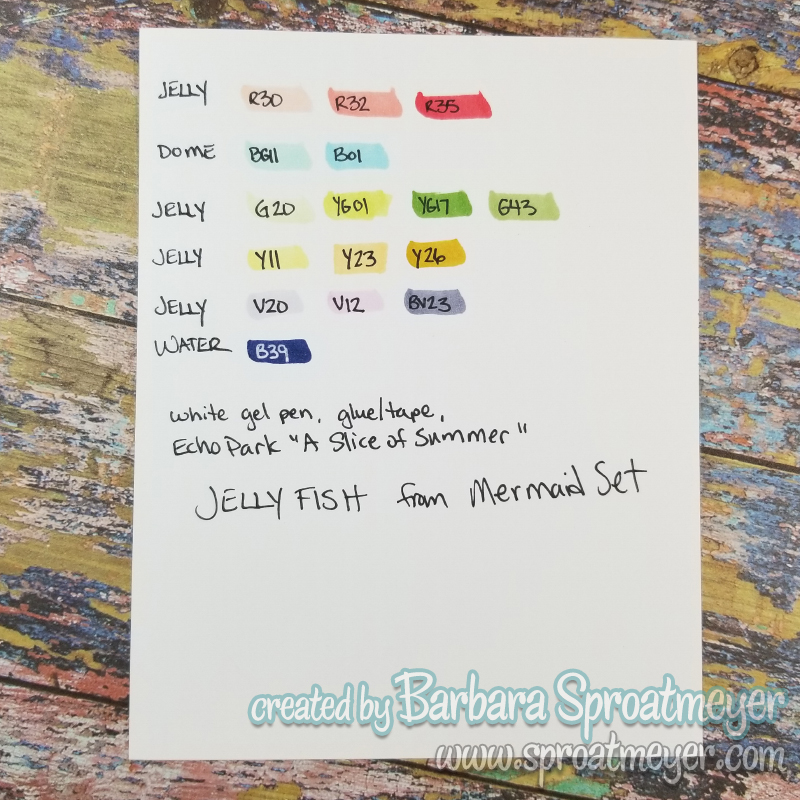 JELLY R30 R32 R35
DOME BG11 B01
JELLY G20 YG01 YG17 G43
JELLY Y11 Y23 Y26
JELLY V20 V12 BV23
WATER B39
white gel pen, glue/tape,
Echo Park "A Slice of Summer"
JELLY FISH from Mermaid Set
created by Barbara Sproatmeyer
www.sproatmeyer.com